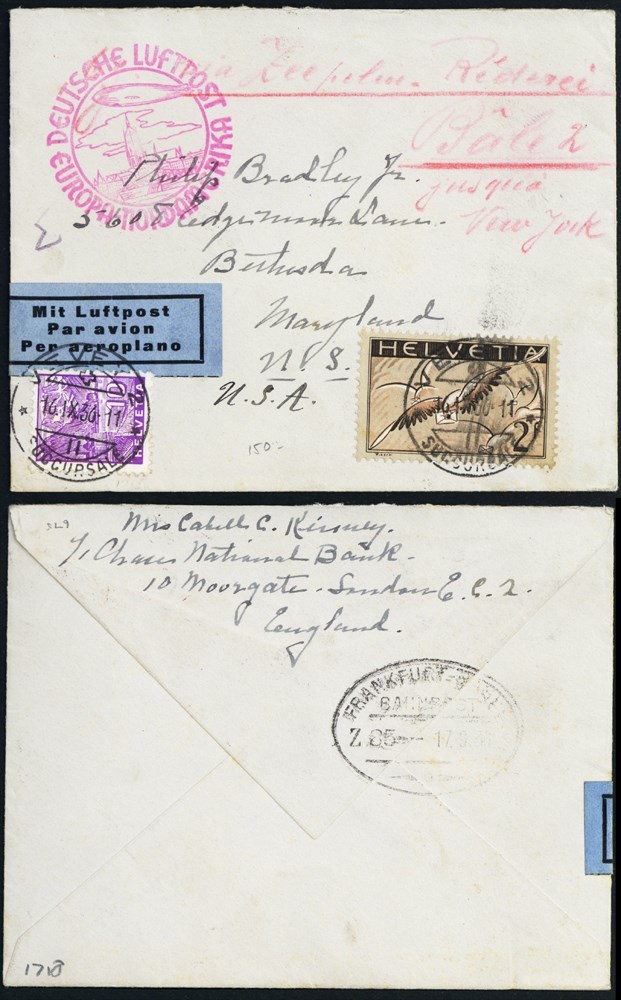 DEUTSCHE LUFTPOST
EUROPA-NORDAMERIKA
via Zeppelin-Réderei
Bâle 2
jusqu'à
New York
Philip Bradley Jr.
Lane.
Bethesda
Maryland
U.S.
U.S.A.
Mit Luftpost
Par avion
Per aeroplano
HELVETIA
2
10
HELVETIA
VEVEY 2
16.IX.36-11
SUCCURSALE
VEVEY 2
16.IX.36-11
SUCCURSALE
150-
329
Mrs Cabell C. Kinney.
c/o Chase National Bank.
10 Moorgate. London E.C.2.
England.
FRANKFURT-BASEL
BAHNPOST
Z.85 17.9.36
1718